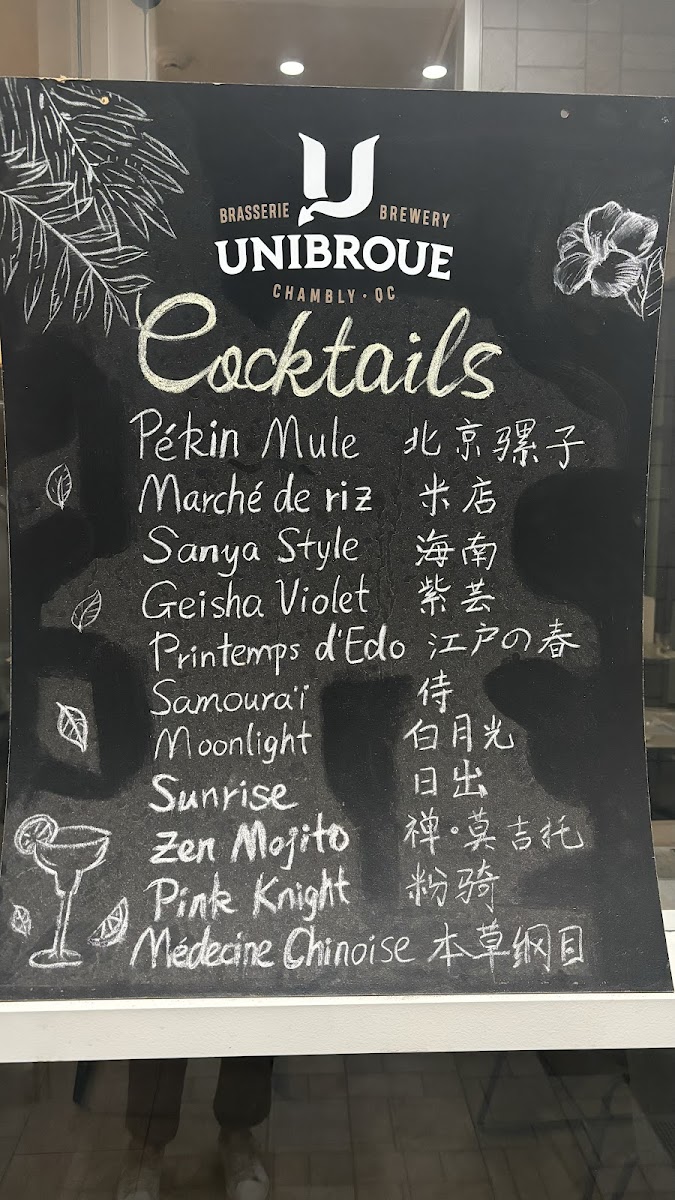 BRASSERIE BREWERY
UNIBROUE
CHAMBLY · QC
Cocktails
Pékin Mule 北京骡子
Marché de riz 米店
Sanya Style 海南
Geisha Violet 紫芸
Printemps d'Edo 江户の春
Samouraï 侍
Moonlight 白月光
Sunrise 日出
Zen Mojito 禅·莫吉托
Pink Knight 粉骑
Médecine Chinoise 本草纲目